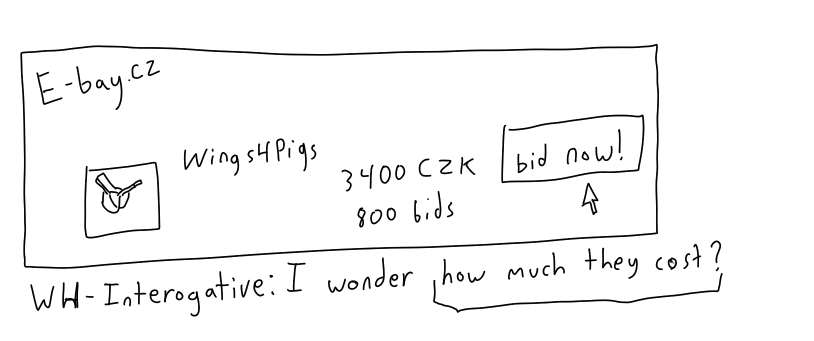 E-bay.cz
Wings4Pigs
3400 CZK
800 bids
bid now!
WH-Interogative: I wonder how much they cost?